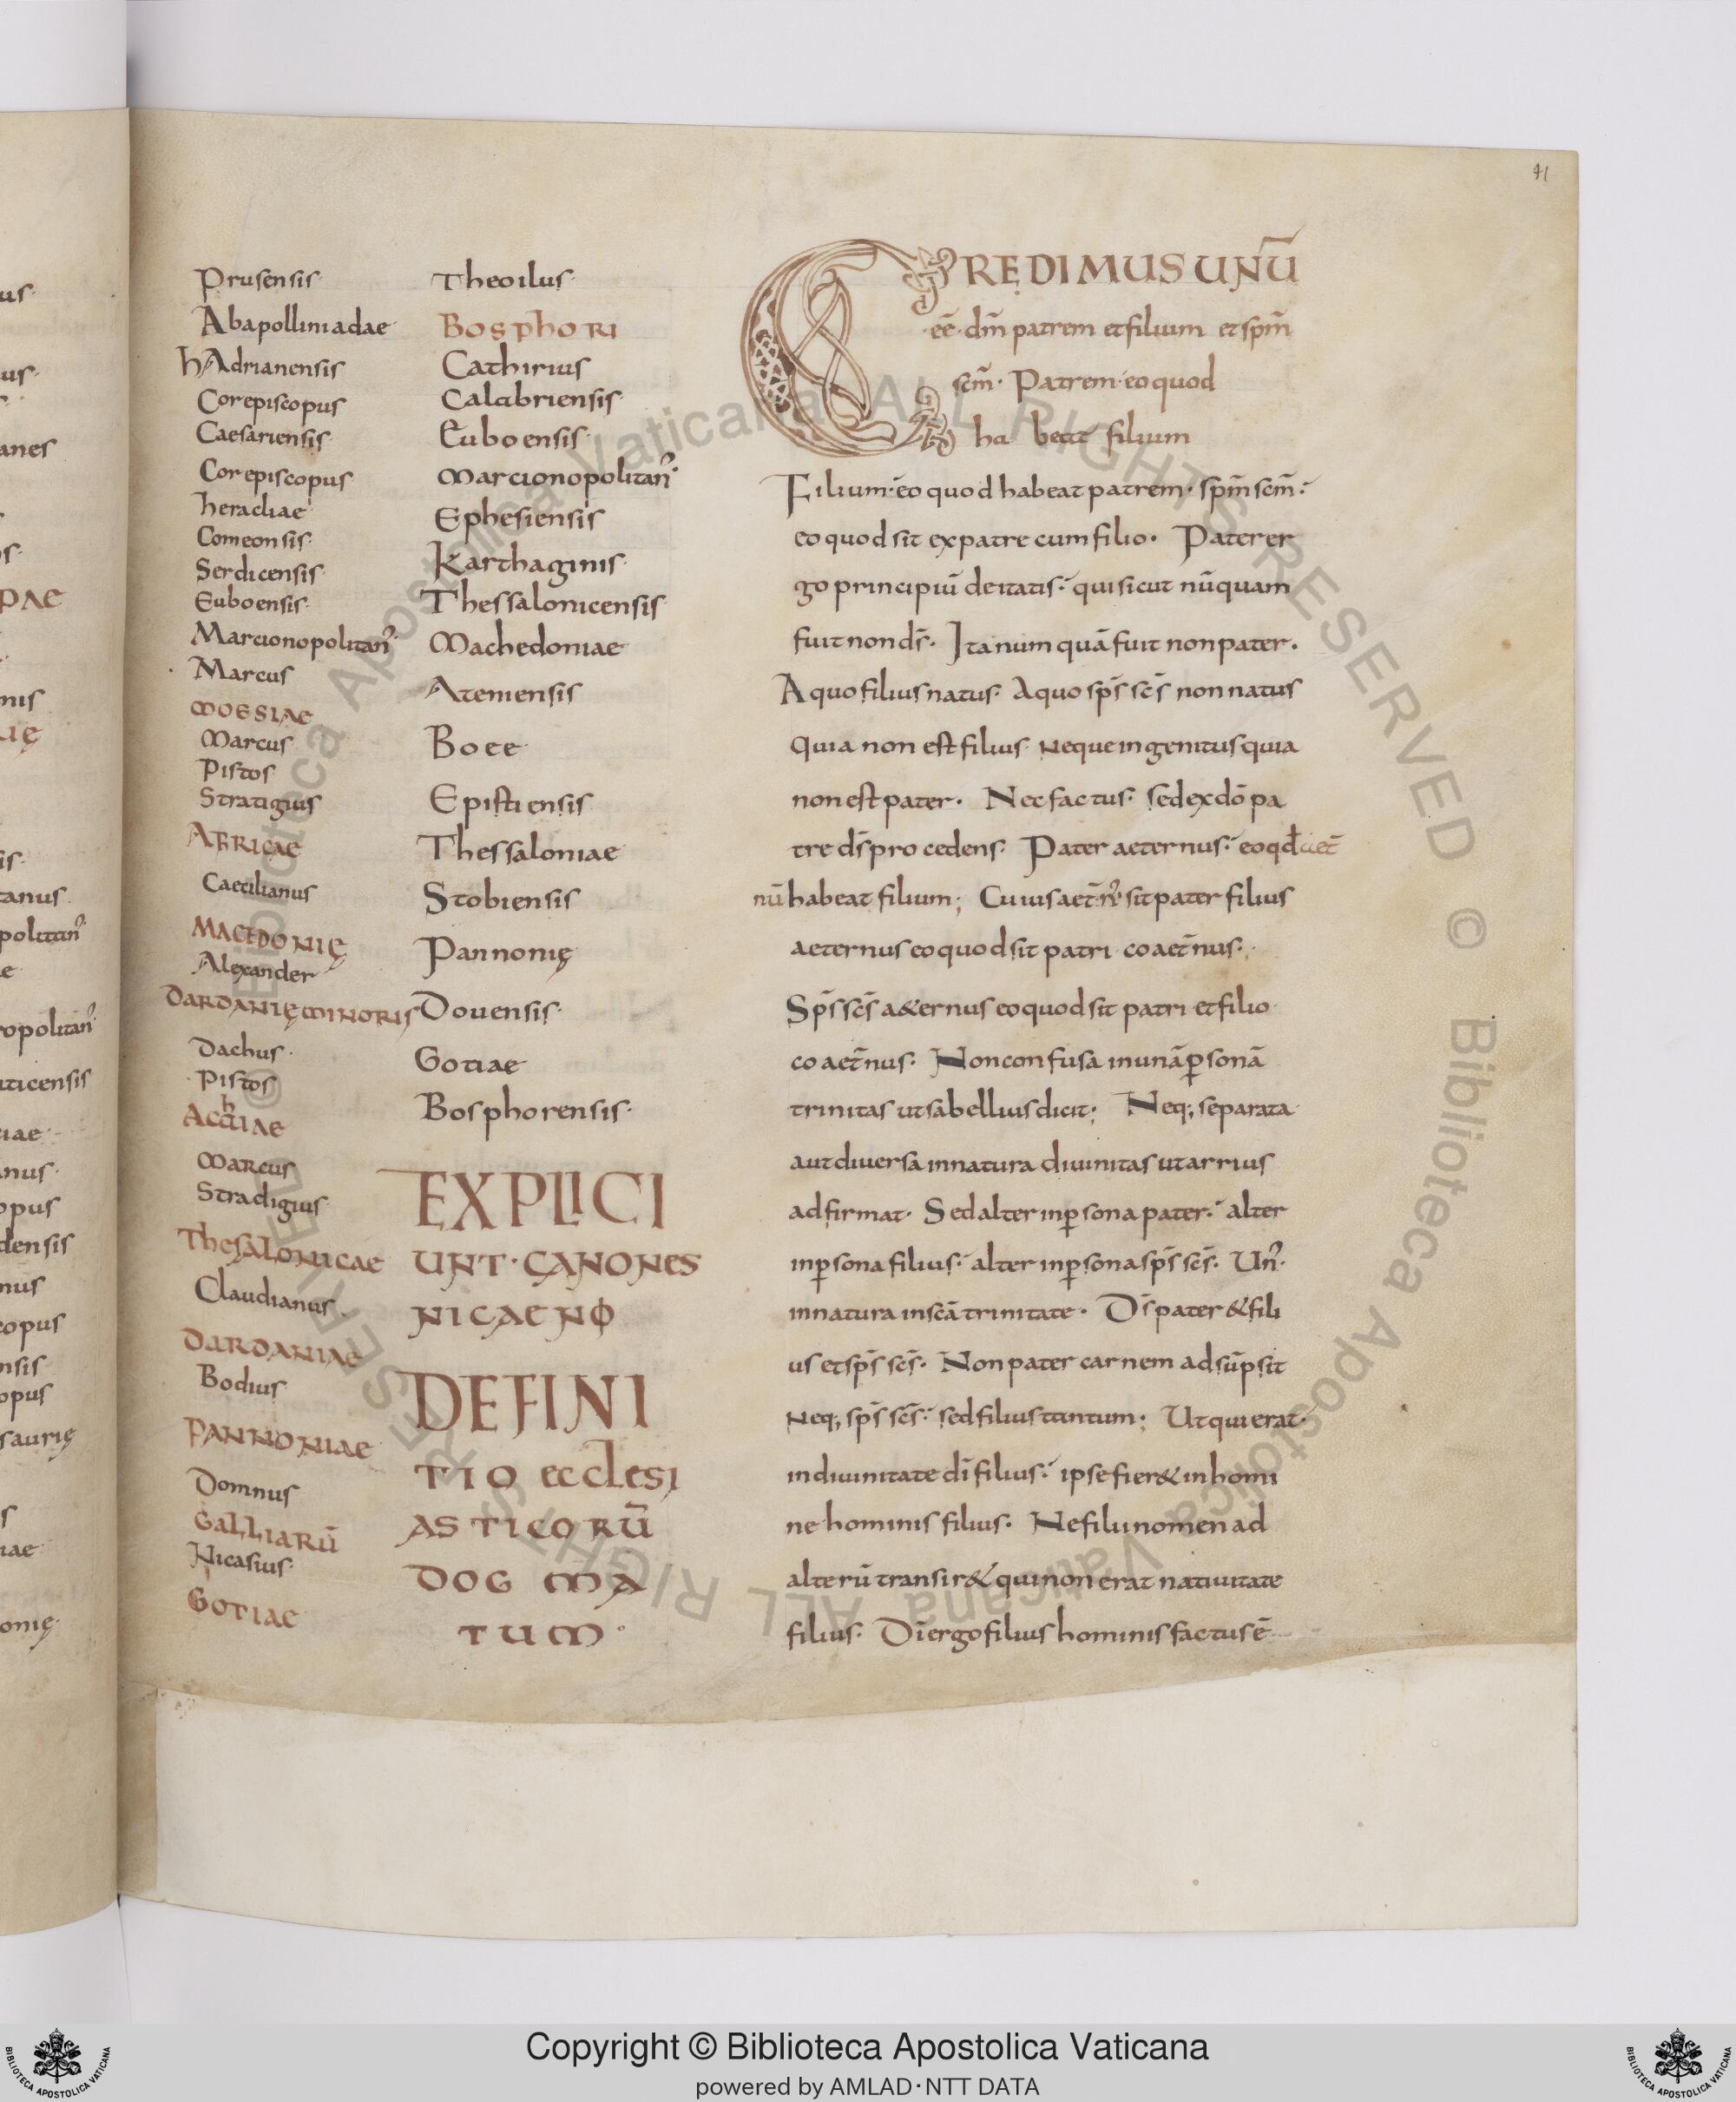 41
Prusensis·
Abapolliniadae·
hAdrianensis
Corepiscopus
Caesariensis·
Corepiscopus
heracliae·
Comeonsis·
Serdicensis·
Euboensis·
Marcionopolitan᷎·
Marcus
MOESIAE
Marcus
Pistos
Stratigius
AFRICAE
Caecilianus
MACEDONIĘ
Alexander
DARDANIĘ MINORIS
Dachus·
Pistos
Marcus
Stradigius·
ThesALONICAE
Claudianus·
DARDANIAE
Bodius
PANNONIAE
Domnus
GALLIARŪ
Nicasius·
GOTIAE
Theoilus·
BOSPhORI
Cathirius
Calabriensis·
Euboensis·
Marcionopolitan᷎·
Ephesiensis
Karthaginis·
Thessalonicensis
Machedoniae·
Ateniensis
Boee·
Epistiensis
Thessaloniae·
Stobiensis
Pannonię
Douensis·
Gotiae·
Bosphorensis·
EXPLICI
UNT·CANONES
NICAENO
DEFINI
TIO ecclesi
ASTICORŪ
DOGMA
TUM·
CREDIMUS UNŪ
eē·dm̄ patrem et filium et spm̄
scm̄· Patrem· eo quod
habeat filium
Filium· eo quod habeat patrem· spm̄ scm̄·
eo quod sit ex patre cum filio· Pater er
go principiū deitatis· qui sicut nūquam
fuit non ds̄· Ita num quā fuit non pater·
A quo filius natus· A quo sps̄ scs̄ non natus
Quia non est filius· neque ingenitus quia
non est pater· Nec factus· sed ex dō pa
tre ds̄ procedens· Pater aeternus· eo qđ aet̄
nū habeat filium; Cuius aet̄n᷎ sit pater filius
aeternus eo quod sit patri coaet̄nus·
Sps̄ scs̄ a&ernus eo quod sit patri et filio
coaet̄nus· Non confusa in unā ꝑsonā
trinitas ut sabellius dicit; Neq; separata
aut diuersa in natura diuinitas ut arrius
adfirmat· Sed alter in ꝑsona pater· alter
in ꝑsona filius· alter in ꝑsona sps̄ scs̄· Un᷎·
in natura in scā trinitate· Ds̄ pater & fili
us et sps̄ scs̄· Non pater carnem adsūpsit
Neq; sps̄ scs̄· sed filius tantum; Ut qui erat·
in diuinitate dī filius· ipse fier& in homi
ne hominis filius· Ne filii nomen ad
alterū transir& qui non erat natiuitate
filius· Dī ergo filius hominis factus ē
© Biblioteca Apostolica Vaticana ALL RIGHTS RESERVED
Copyright © Biblioteca Apostolica Vaticana
powered by AMLAD·NTT DATA
BIBLIOTECA APOSTOLICA VATICANA
BIBLIOTECA APOSTOLICA VATICANA